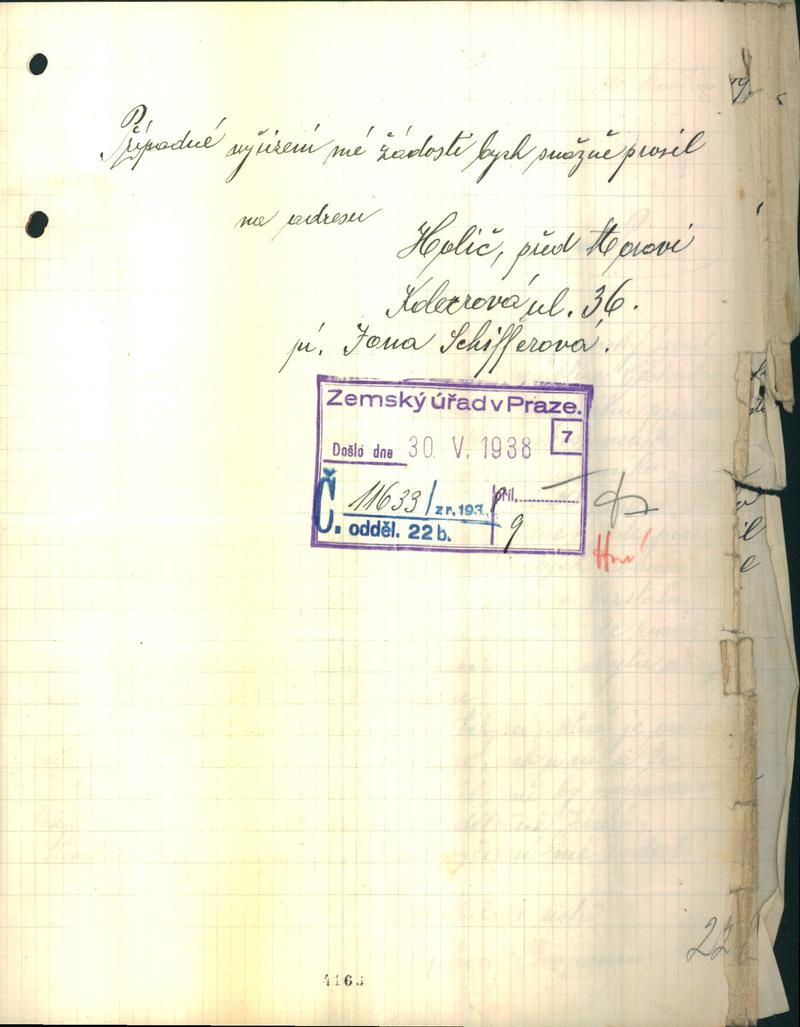 Případné vyřízení mé žádosti bych snažně prosil
na adresu
Holič, před Moravi
ul. 36.
pí. Jona Schifferová.
Zemský úřad v Praze.
7
Došlo dne 30 V. 1938
Č. 11633/z r. 193 příl.
odděl. 22 b. 9
22
4165